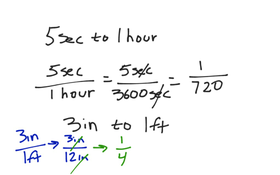 5 sec to 1 hour
5 sec / 1 hour = 5 sec / 3600 sec = 1 / 720
3 in to 1 ft
3 in / 1 ft → 3 in / 12 in → 1 / 4